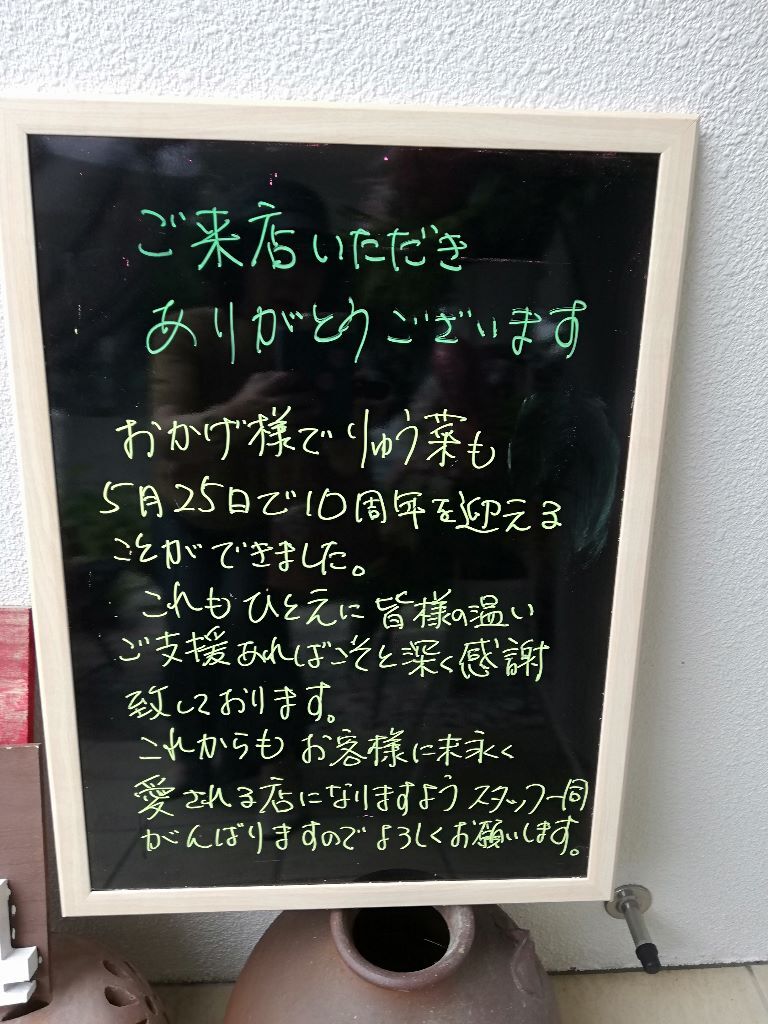 ご来店いただき
ありがとうございます
おかげ様でりゅう菜も
5月25日で10周年を迎える
ことができました。
これもひとえに皆様の温い
ご支援あればこそと深く感謝
致しております。
これからもお客様に末永く
愛される店になりますようスタッフ一同
がんばりますのでよろしくお願いします。